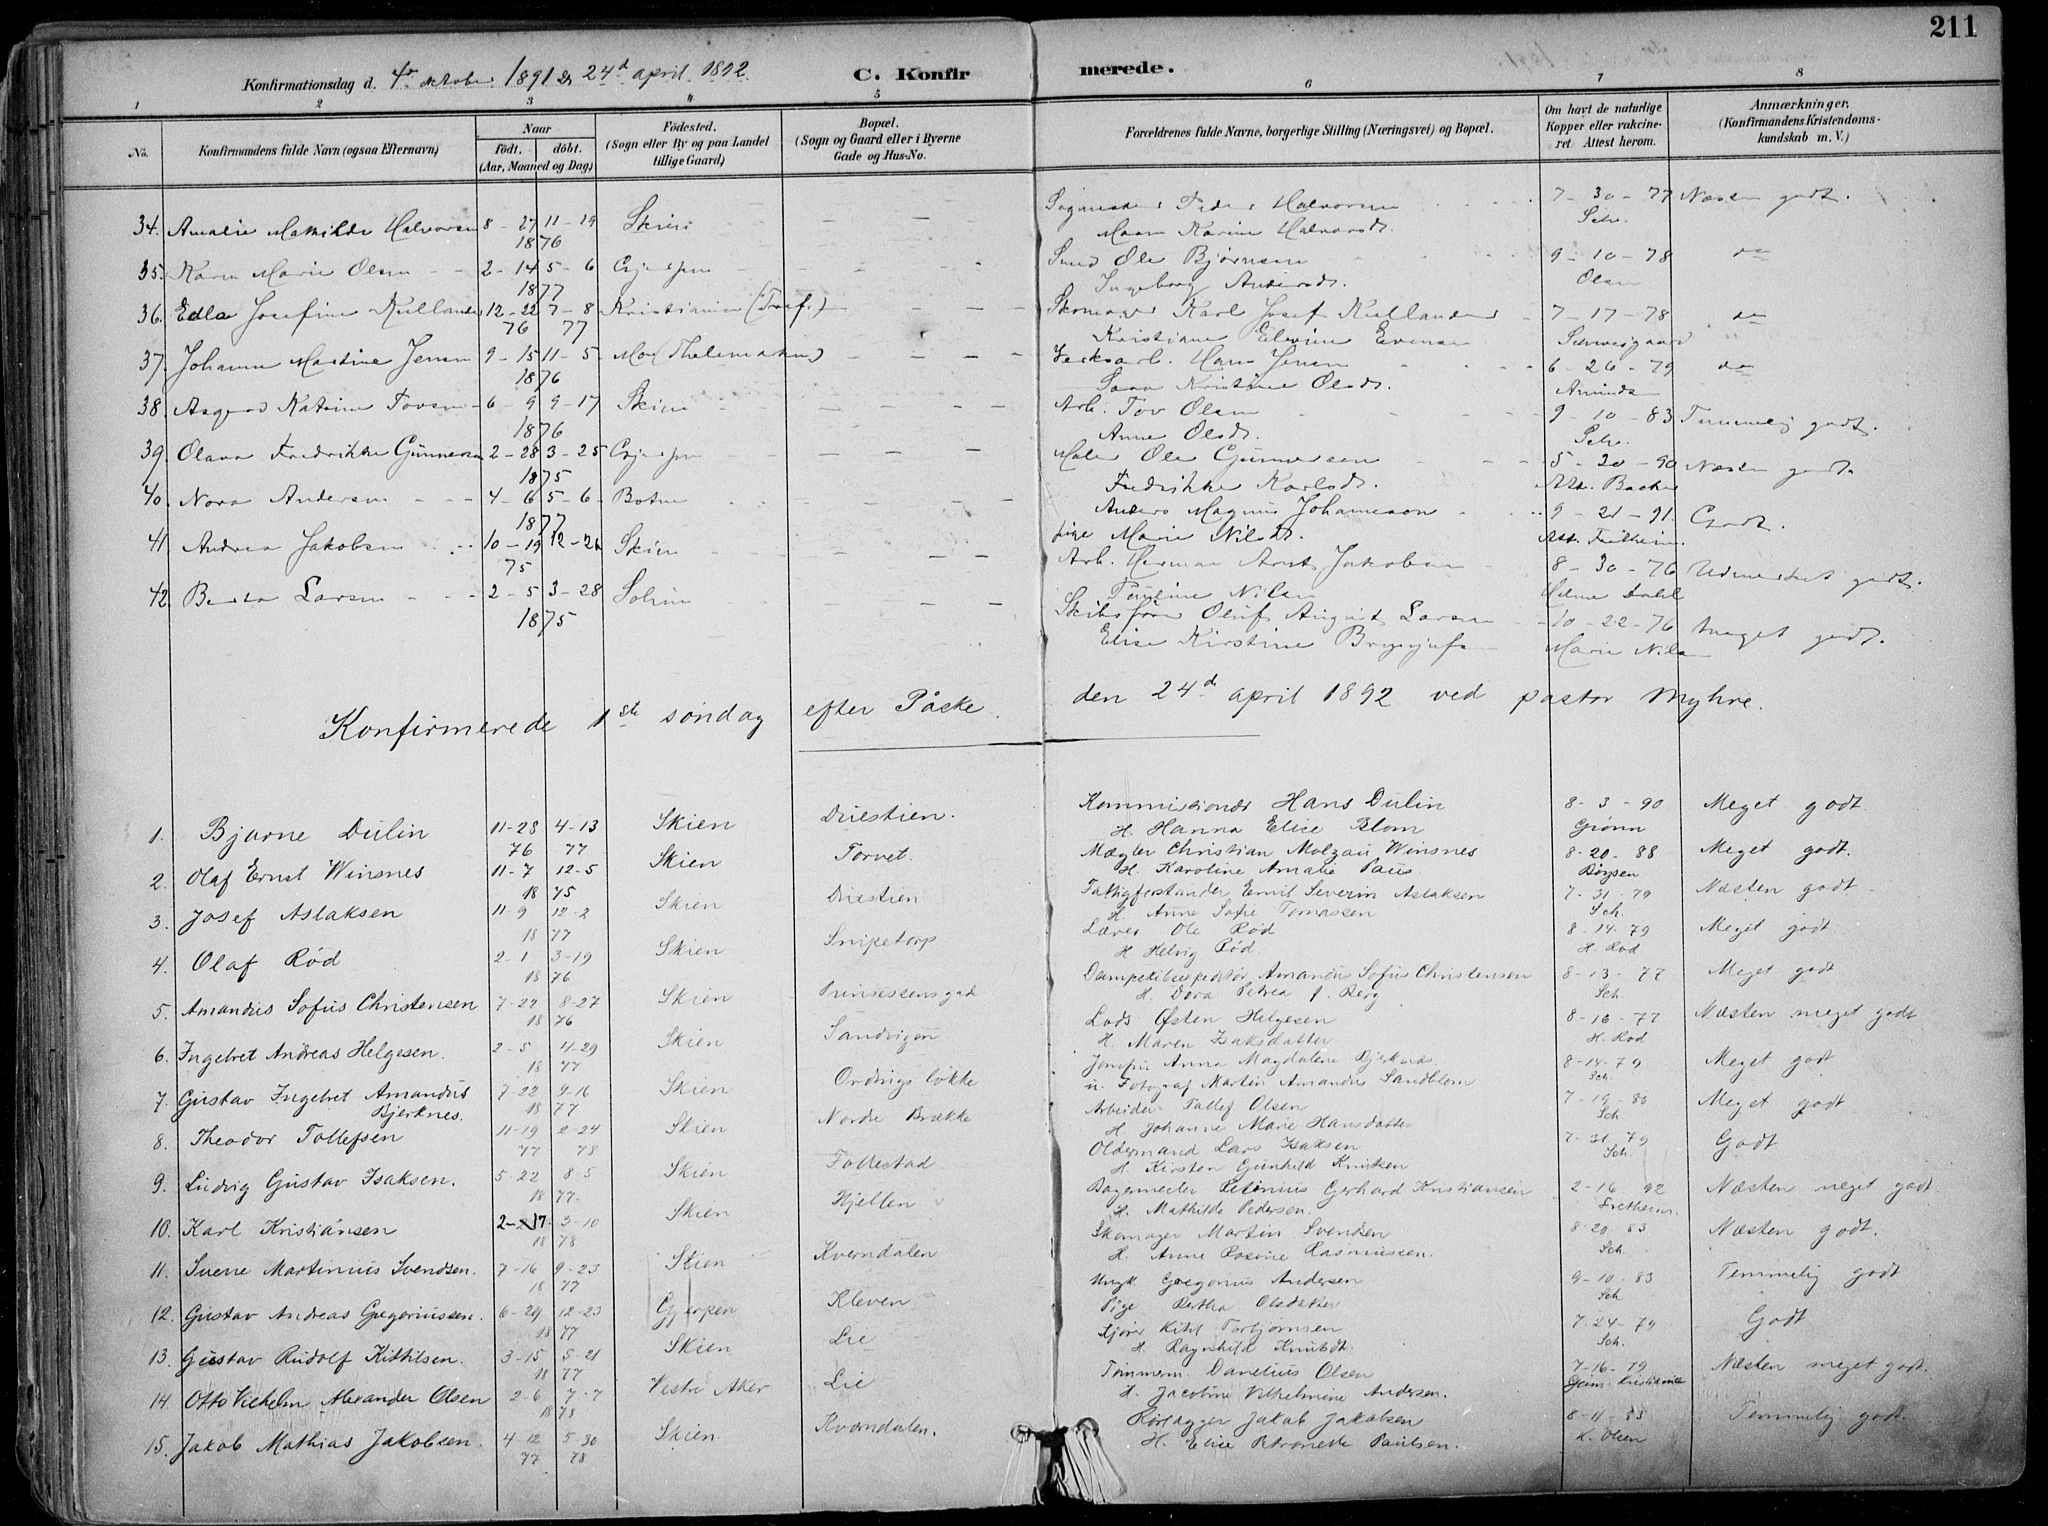 211
Konfirmationsdag d. 4de oktober 1891 & 24d april 1892. C. Konfirmerede.
1 2 3 4 5 6 7 8
No. Konfirmandens fulde Navn (ogsaa Efternavn) Naar Födt. döbt. (Aar, Maaned og Dag) Födested. (Sogn eller By og paa Landet tillige Gaard) Bopæl. (Sogn og Gaard eller i Byerne Gade og Hus-No. Forældrenes fulde Navne, borgerlige Stilling (Næringsvei) og Bopæl. Om havt de naturlige Kopper eller vakcineret Attest herom. Anmærkninger. (Konfirmandens Kristendomskundskab m. V.)
34. Amalie Mathilde Halvorsen 8-27 11-19 1876 Skien Halvorsen 7-30-77 Næsten godt.
Maren Karine Halvorsd. Sch.
35. Karen Marie Olsen 2-14 5-6 1877 Gjerpen Smed Ole Bjørnsen 9-10-78 do
Ingeborg Andersd. Olsen
36. Edla Josefine Kullander 12-22 7-8 76 77 Kristiania Skomager Karl Josef Kullander 7-17-78 do
Kristiane Elevine Evensen Schweigaard
37. Johanne Martine Jensen 9-15 11-5 1876 Mo (Thelemarken) Verksarb. Hans Jensen 6-26-79 do
Sara Kristine Olsd. Amundsen
38. Asgerd Katrine Tovsen 6-9 9-17 1876 Skien Arb. Tov Olsen 9-10-83 Temmelig godt.
Anne Olsd. Sch.
39. Olava Fredrikke Gunnersen 2-28 3-25 1875 Gjerpen Maler Ole Gunnersen 5-20-90 Næsten godt.
Fredrikke Karlsd. Att. Backer
40. Nora Andersen 4-6 5-6 1877 Botne Anders Magnus Johanneson 9-21-91 Godt.
pige Marie Nilsd. Att. Fretheim.
41. Andrea Jakobsen 10-19 12-26 75 Skien Arb. Herman Arnt Jakobsen 8-30-76 Udmerket godt.
Pauline Nilsen Helene Dahl
42. Berta Larsen 2-5 3-28 1875 Solum Skibsfører Oluf August Larsen 10-22-76 Meget godt.
Elise Kirstine Marie Nilsen
Konfirmerede 1ste søndag efter Påske. den 24de april 1892 ved pastor Myhre.
1. Bjarne Dulin 11-28 4-13 76 77 Skien Duestien. Kommissionær Hans Dulin 8-3-90 Meget godt
H. Hanna Elise Blom Grønn
2. Olaf Ernst Winsnes 11-7 12-5 1875 Skien Torvet. Mægler Christian Molzau Winsnes 8-20-88 Meget godt.
H. Karoline Amalie Paus Børsen
3. Josef Aslaksen 11-9 12-2 1877 Skien Duestien Fattigforstander Emil Severin Aslaksen 7-31-79 Næsten godt
H. Anne Sofie Tomassen Sch.
4. Olaf Rød 2-1 3-19 1876 Skien Snipetorp Lærer Ole Rød 8-14-79 Meget godt.
H Helvig Rød H. Rød
5. Amandus Sofus Christensen 7-22 8-27 1876 Skien Prinsessensgade Dampskibsexpeditør Amandus Sofus Christensen 8-13-77 Meget godt
H. Dora Petrea f. Berg Sch.
6. Ingebret Andreas Helgesen. 2-5 4-29 1877 Skien Sandvigen Lods Østen Helgesen 8-16-77 Næsten meget godt
H. Maren Isaksdatter H. Rød
7. Gustav Ingebret Amandus Bjerknes. 7-22 9-16 1877 Skien Ordrupsløkke Jomfru Anna Magdalene Bjerknes 8-14-79 Meget godt
u. Fotograf Martin Amandus Sandblom Sch.
8. Theodor Tollefsen 11-19 2-24 77 78 Skien Nordre Brække Arbeider Tollef Olsen 7-19-80 Meget godt
H. Johanne Marie Hansdatter Sch.
9. Ludvig Gustav Isaksen. 5-22 8-5 1877. Skien Follestad Oldermand Lars Isaksen 7-31-79 Godt
H. Kirsten Gunhild Knutsen Sch.
10. Karl Kristiansen 2-17. 3-10 1878 Skien Hjellen Bagermester Petinius Gerhard Kristiansen 2-16-92 Næsten meget godt
H. Mathilde Pedersen. Fretheim.
11. Svene Martinius Svendsen. 7-16 9-23 1877 Skien Kverndalen Skomager Martin Svendsen 8-20-83 Næsten godt.
H. Anne Rosine Rasmussen. Sch.
12. Gustav Andreas Gregoriussen. 6-29 12-23 1877 Gjerpen Kleven Ungk. Gregorius Andersen 9-10-83 Temmelig godt
Pige Bertha Olsdatter Sch
13. Gustav Rudolf Kittilsen. 3-15 5-21 1877 Skien Lie Kjører Kittil Torbjørnsen 7-24-79 Godt
H. Ragnhild Knutsdt. Sch.
14. Otto Vilhelm Alexander Olsen 2-6 7-7 1878 Vestre Aker Lie Tømmerm. Danelius Olsen 7-16-79 Næsten meget godt.
H. Jacobine Vilhelmine Andersen. Kristiania
15. Jakob Mathias Jakobsen. 4-12 5-30 77 78 Skien Kverndalen. Jakob Jakobsen 8-11-83 Temmelig godt.
H. Elise Petronelle Paulsen. K. Olsen